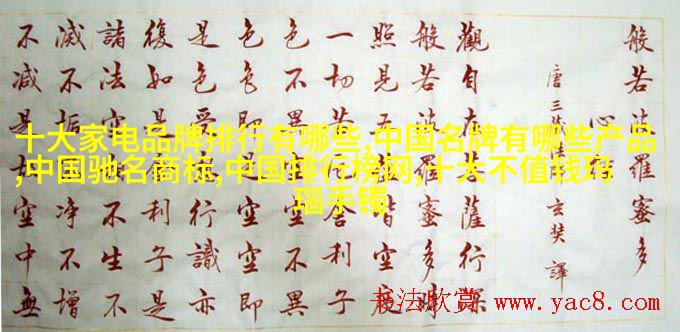 十大家电品牌排行有哪些,中国名牌有哪些产品
,中国驰名商标,中国排行榜网,十大不值钱玛
瑙手镯
般若波羅蜜多
心
唐三藏 玄奘譯
觀自在菩薩行深
般若波羅蜜多時
照見五蘊皆空度
一切苦厄舍利子
色不異空空不異
色色即是空空即
是色受想行識亦
復如是舍利子是
諸法空相不生不
滅不垢不淨不增
不減是故空中無
书法欣赏 www.yac8.com